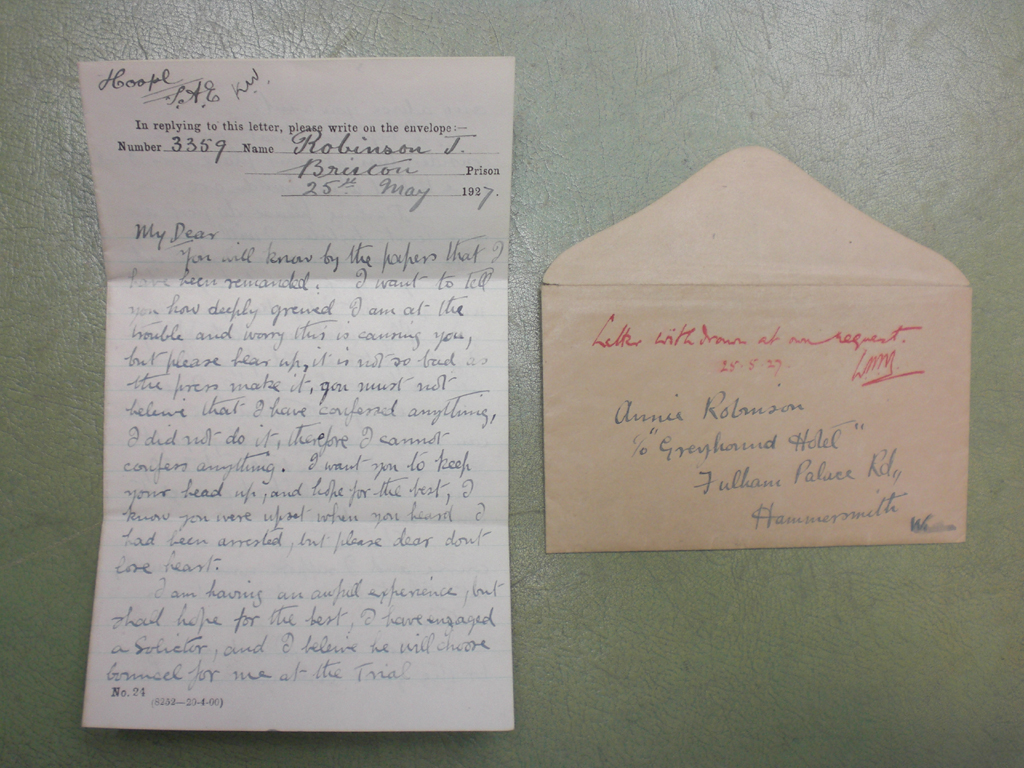 Hospl
S.A.E KW.
In replying to this letter, please write on the envelope:—
Number 3359 Name Robinson J.
Brixton Prison
25th May 1927.
My Dear
You will know by the papers that I
have been remanded. I want to tell
you how deeply greived I am at the
trouble and worry this is causing you,
but please bear up, it is not so bad as
the press make it, you must not
beleive that I have confessed anything,
I did not do it, therefore I cannot
confess anything. I want you to keep
your head up, and hope for the best, I
know you were upset when you heard I
had been arrested, but please dear dont
lose heart.
I am having an awful experience, but
shall hope for the best, I have engaged
a Solicitor, and I beleive he will choose
Counsel for me at the Trial
No. 24
(8252—20-4-00)
Letter withdrawn at own request.
25.5.27.
Annie Robinson
c/o "Greyhound Hotel"
Fulham Palace Rd,,
Hammersmith